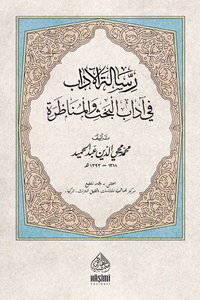 رسالة الآداب
في آداب البحث والمناظرة
تأليف
محمد محيي الدين عبد الحميد
١٣١٨ - ١٣٩٣ هـ
HAŞİMİ
YAYINEVİ